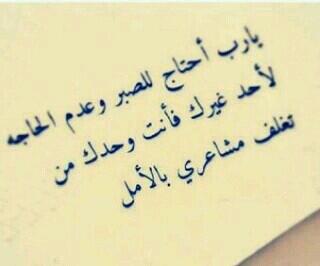 يارب أحتاج للصبر وعدم الحاجه
لأحد غيرك فأنت وحدك من
تغلف مشاعري بالأمل